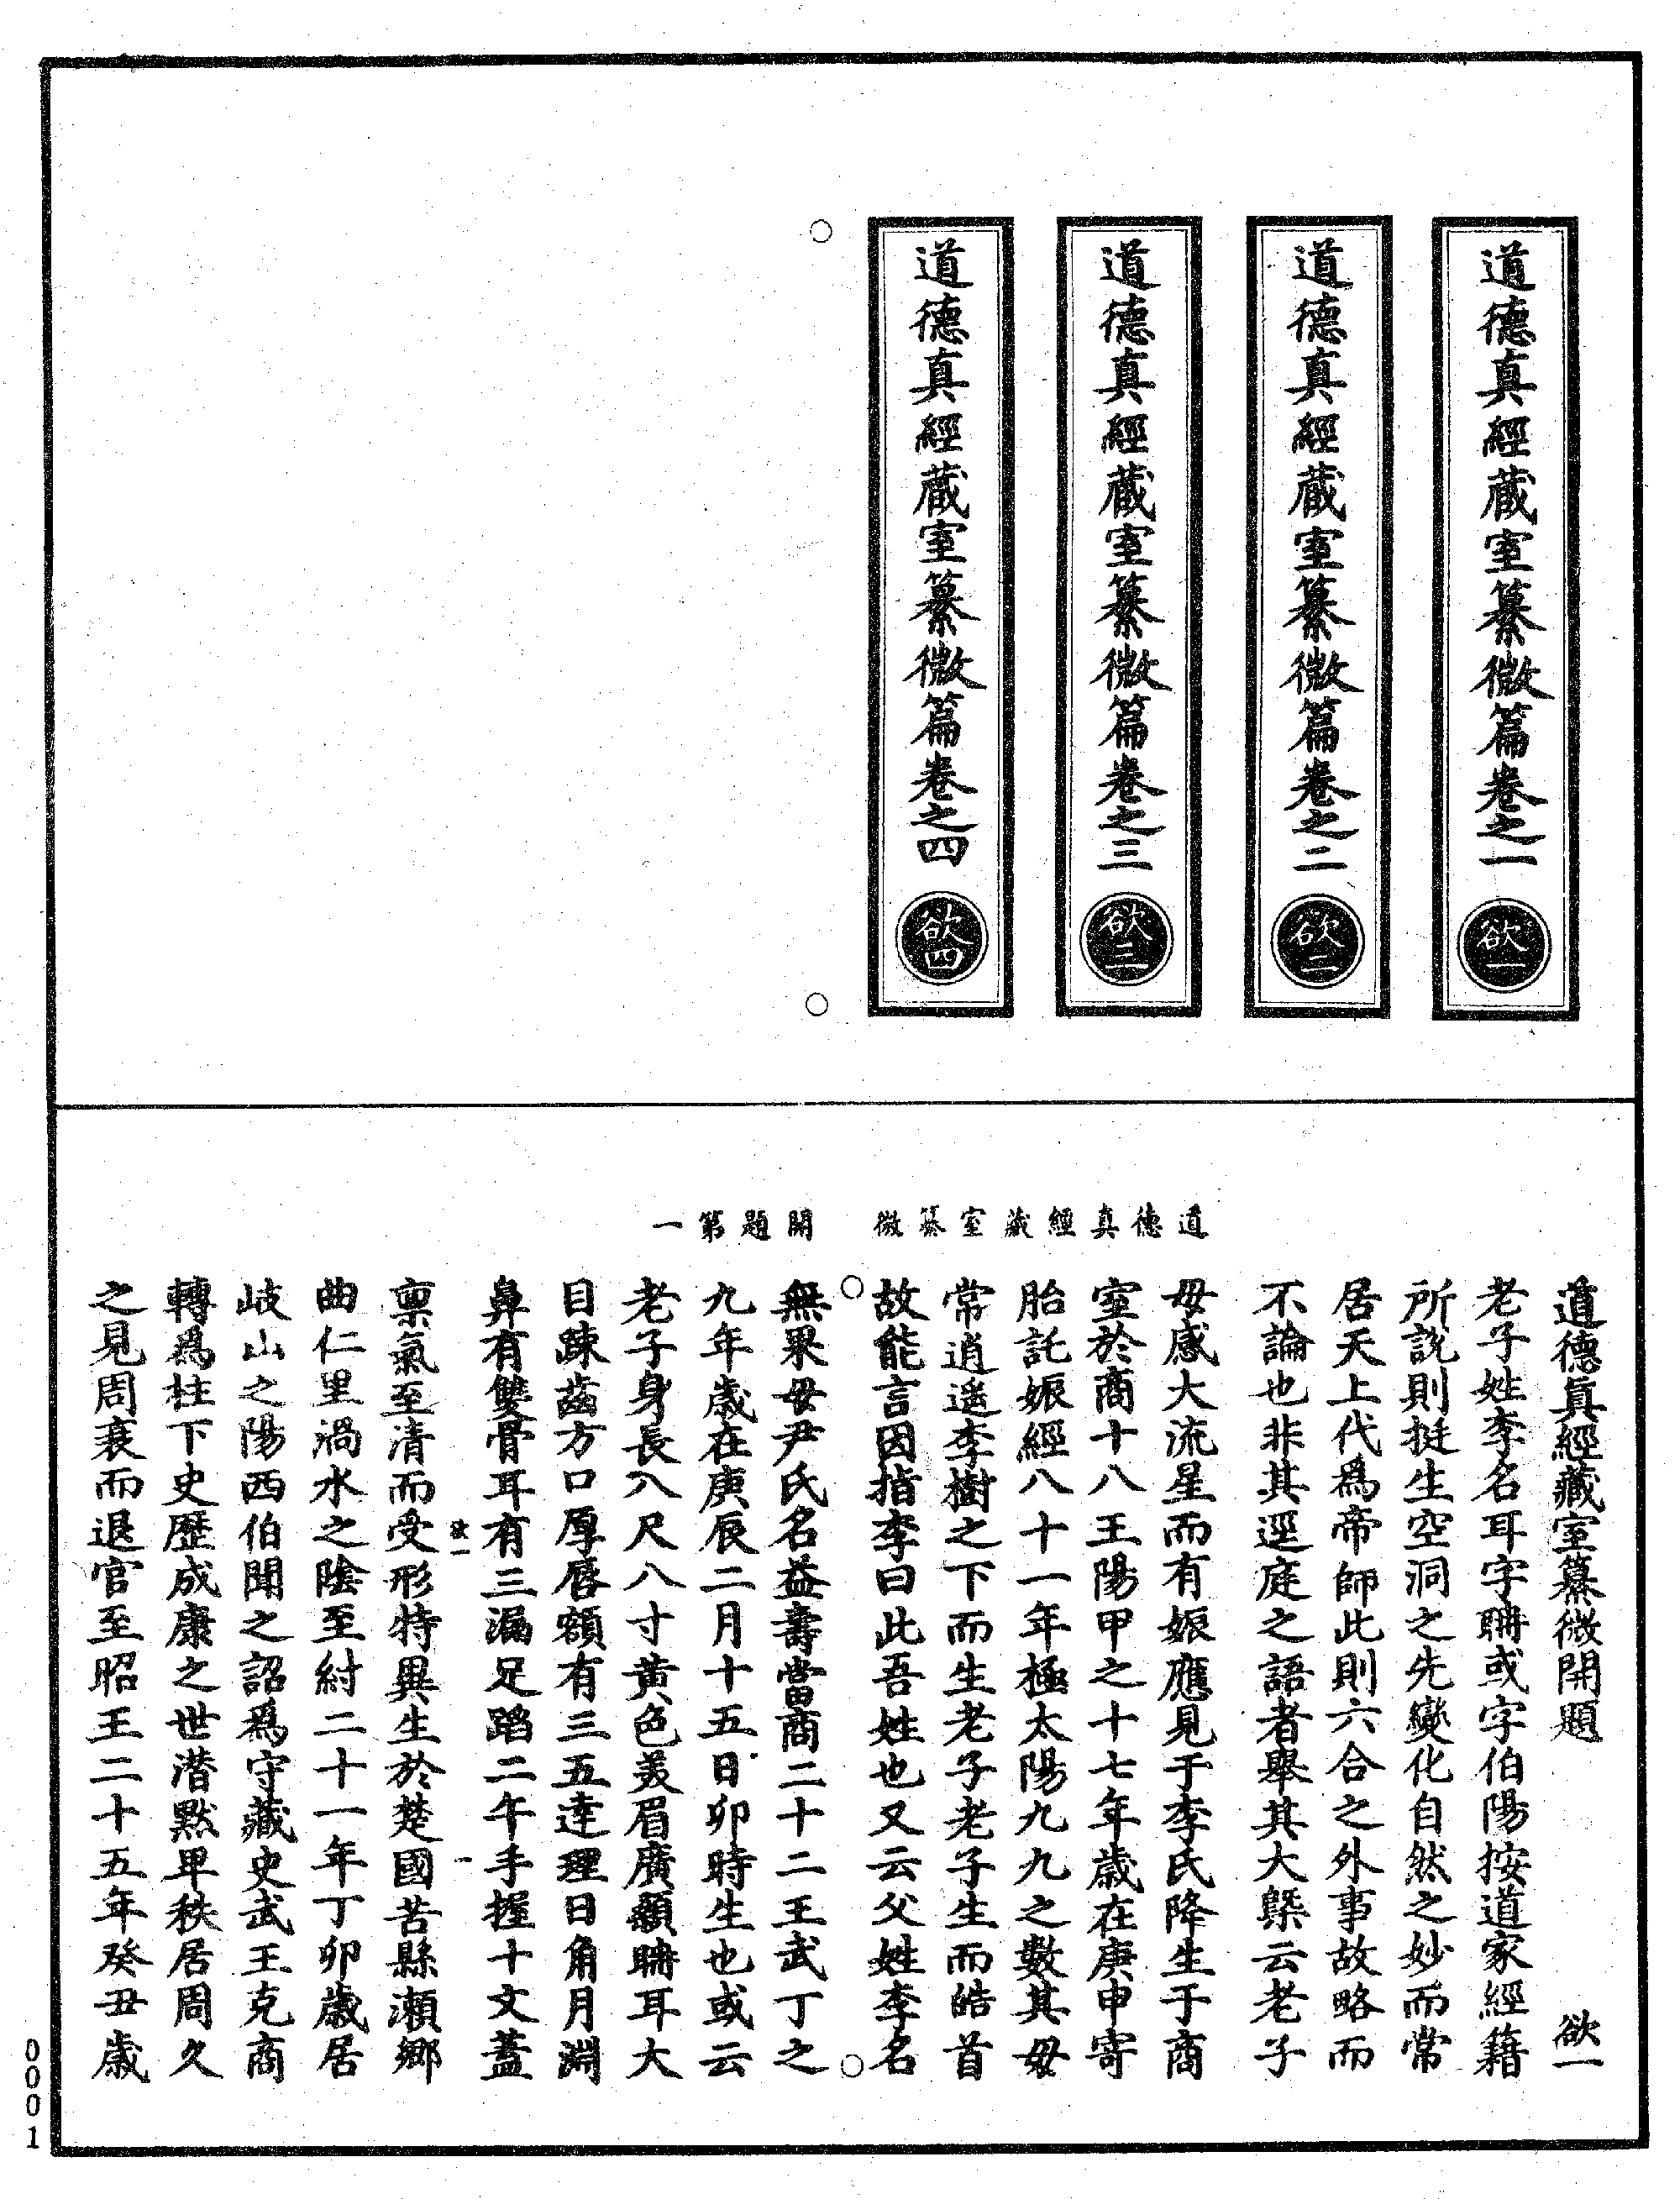 道德真經藏室纂微篇卷之一
欲一
道德真經藏室纂微篇卷之二
欲二
道德真經藏室纂微篇卷之三
欲三
道德真經藏室纂微篇卷之四
欲四
道德真經藏室纂微　開題第一
道德眞經藏室纂微開題　欲一
老子姓李名耳字聃或字伯陽按道家經籍
所說則挺生空洞之先變化自然之妙而常
居天上代爲帝師此則六合之外事故略而
不論也非其逕庭之語者舉其大槩云老子
母感大流星而有娠應見于李氏降生于商
室於商十八王陽甲之十七年歲在庚申寄
胎託娠經八十一年極太陽九九之數其母
常逍遥李樹之下而生老子老子生而皓首
故能言因指李曰此吾姓也又云父姓李名
無果母尹氏名益壽當商二十二王武丁之
九年歲在庚辰二月十五日卯時生也或云
老子身長八尺八寸黃色美眉廣顙聃耳大
目踈齒方口厚唇額有三五達理日角月淵
鼻有雙骨耳有三漏足蹈二午手握十文蓋
欲一　一
禀氣至清而受形特異生於楚國苦縣瀬鄉
曲仁里渦水之陰至紂二十一年丁卯歲居
岐山之陽西伯聞之詔爲守藏史武王克商
轉爲柱下史歷成康之世潜默卑秩居周久
之見周衰而退官至昭王二十五年癸丑歲
0001